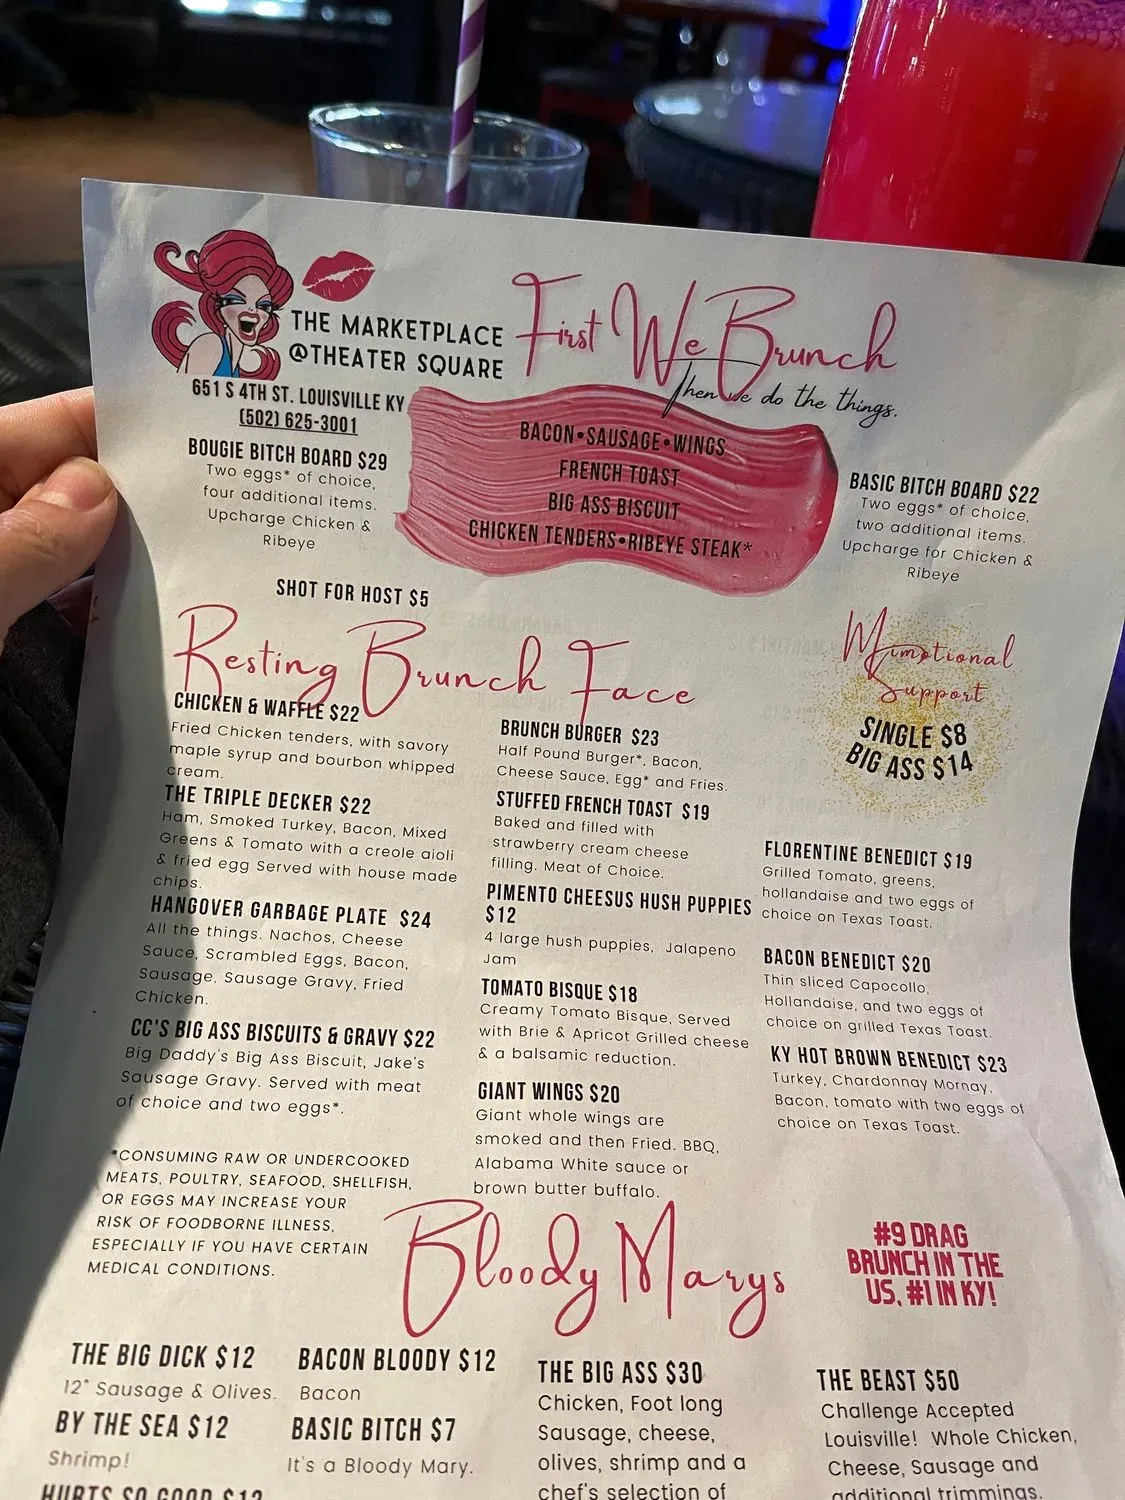 THE MARKETPLACE
@THEATER SQUARE
651 S 4TH ST. LOUISVILLE KY
(502) 625-3001
First We Brunch
Then we do the things.
BOUGIE BITCH BOARD $29
Two eggs* of choice,
four additional items.
Upcharge Chicken &
Ribeye
BACON•SAUSAGE•WINGS
FRENCH TOAST
BIG ASS BISCUIT
CHICKEN TENDERS•RIBEYE STEAK*
BASIC BITCH BOARD $22
Two eggs* of choice,
two additional items.
Upcharge for Chicken &
Ribeye
SHOT FOR HOST $5
Resting Brunch Face
CHICKEN & WAFFLE $22
Fried Chicken tenders, with savory
maple syrup and bourbon whipped
cream.
THE TRIPLE DECKER $22
Ham, Smoked Turkey, Bacon, Mixed
Greens & Tomato with a creole aioli
& fried egg Served with house made
chips.
HANGOVER GARBAGE PLATE $24
All the things. Nachos, Cheese
Sauce, Scrambled Eggs, Bacon,
Sausage, Sausage Gravy, Fried
Chicken.
CC'S BIG ASS BISCUITS & GRAVY $22
Big Daddy's Big Ass Biscuit, Jake's
Sausage Gravy. Served with meat
of choice and two eggs*.
*CONSUMING RAW OR UNDERCOOKED
MEATS, POULTRY, SEAFOOD, SHELLFISH,
OR EGGS MAY INCREASE YOUR
RISK OF FOODBORNE ILLNESS,
ESPECIALLY IF YOU HAVE CERTAIN
MEDICAL CONDITIONS.
BRUNCH BURGER $23
Half Pound Burger*, Bacon,
Cheese Sauce, Egg* and Fries.
STUFFED FRENCH TOAST $19
Baked and filled with
strawberry cream cheese
filling. Meat of Choice.
PIMENTO CHEESUS HUSH PUPPIES
$12
4 large hush puppies, Jalapeno
Jam
TOMATO BISQUE $18
Creamy Tomato Bisque, Served
with Brie & Apricot Grilled cheese
& a balsamic reduction.
GIANT WINGS $20
Giant whole wings are
smoked and then Fried. BBQ,
Alabama White sauce or
brown butter buffalo.
Mimotional
Support
SINGLE $8
BIG ASS $14
FLORENTINE BENEDICT $19
Grilled Tomato, greens,
hollandaise and two eggs of
choice on Texas Toast.
BACON BENEDICT $20
Thin sliced Capocollo,
Hollandaise, and two eggs of
choice on grilled Texas Toast.
KY HOT BROWN BENEDICT $23
Turkey, Chardonnay Mornay,
Bacon, tomato with two eggs of
choice on Texas Toast.
Bloody Marys
#9 DRAG
BRUNCH IN THE
US, #1 IN KY!
THE BIG DICK $12
12" Sausage & Olives.
BY THE SEA $12
Shrimp!
HURTS SO GOOD $12
BACON BLOODY $12
Bacon
BASIC BITCH $7
It's a Bloody Mary.
THE BIG ASS $30
Chicken, Foot long
Sausage, cheese,
olives, shrimp and a
chef's selection of
THE BEAST $50
Challenge Accepted
Louisville! Whole Chicken,
Cheese, Sausage and
additional trimmings.